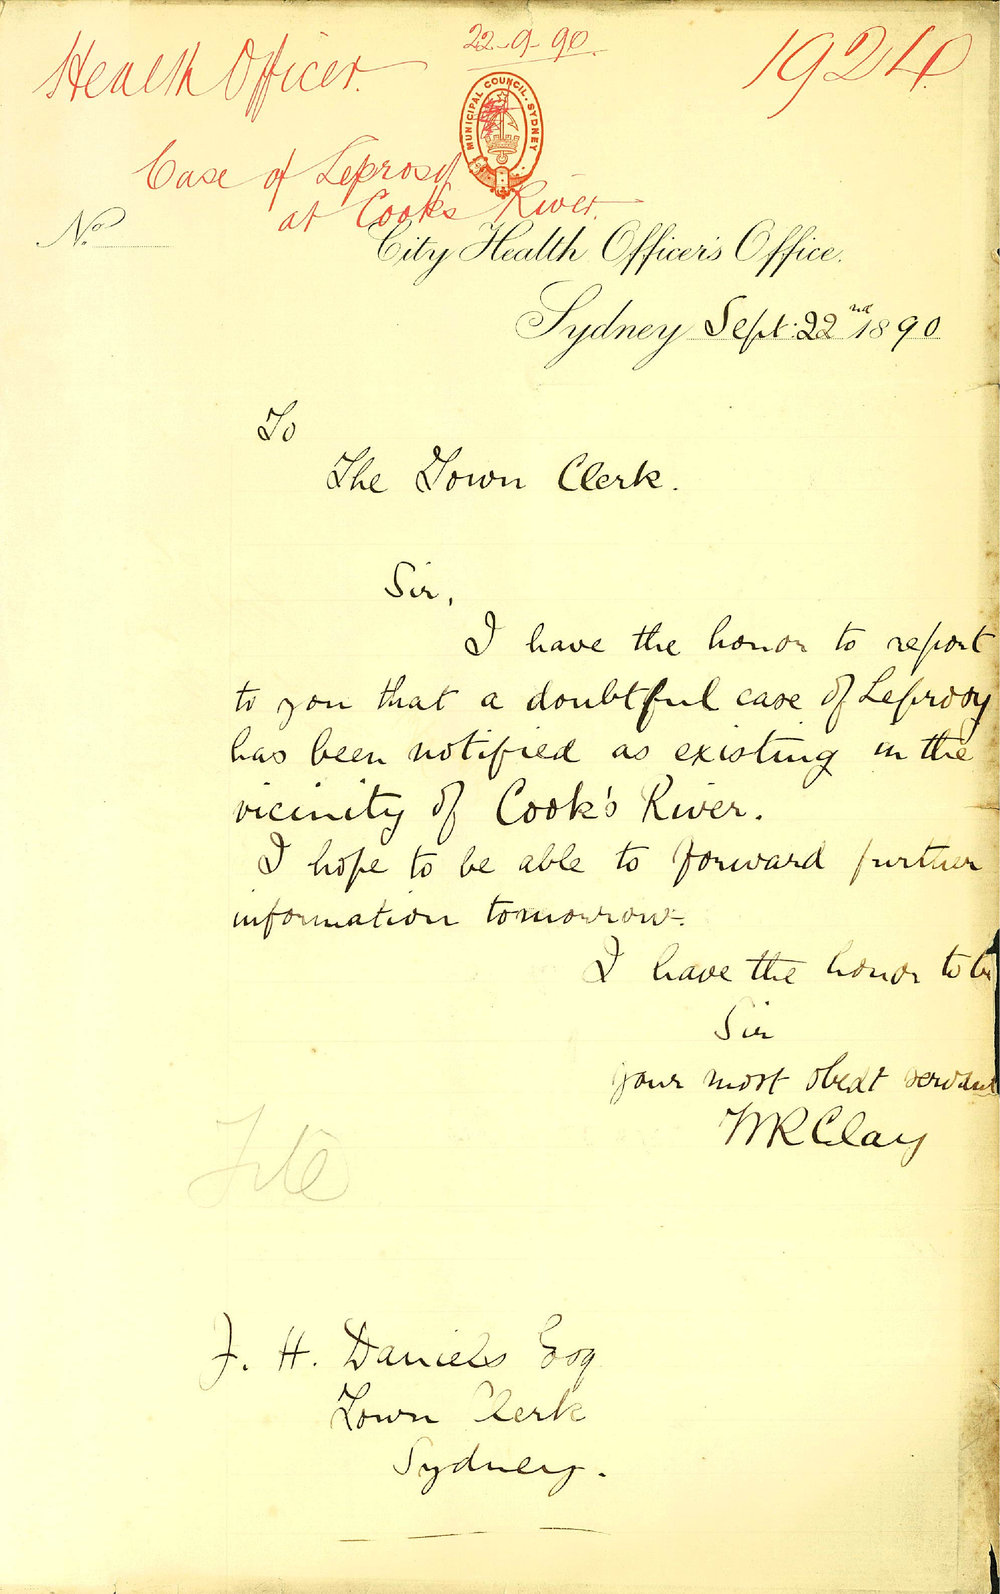 22-9-90.
Health Officer.
1924
MUNICIPAL COUNCIL. SYDNEY
Case of Leprosy
at Cooks River.
No.
City Health Officer's Office.
Sydney Sept: 22nd 1890
To
The Town Clerk.
Sir,
I have the honor to report
to you that a doubtful case of Leprosy
has been notified as existing in the
vicinity of Cook's River.
I hope to be able to forward further
information tomorrow.
I have the honor to be
Sir
your most obedt servant
WR Clay
File
J. H. Daniels Esq
Town Clerk
Sydney.